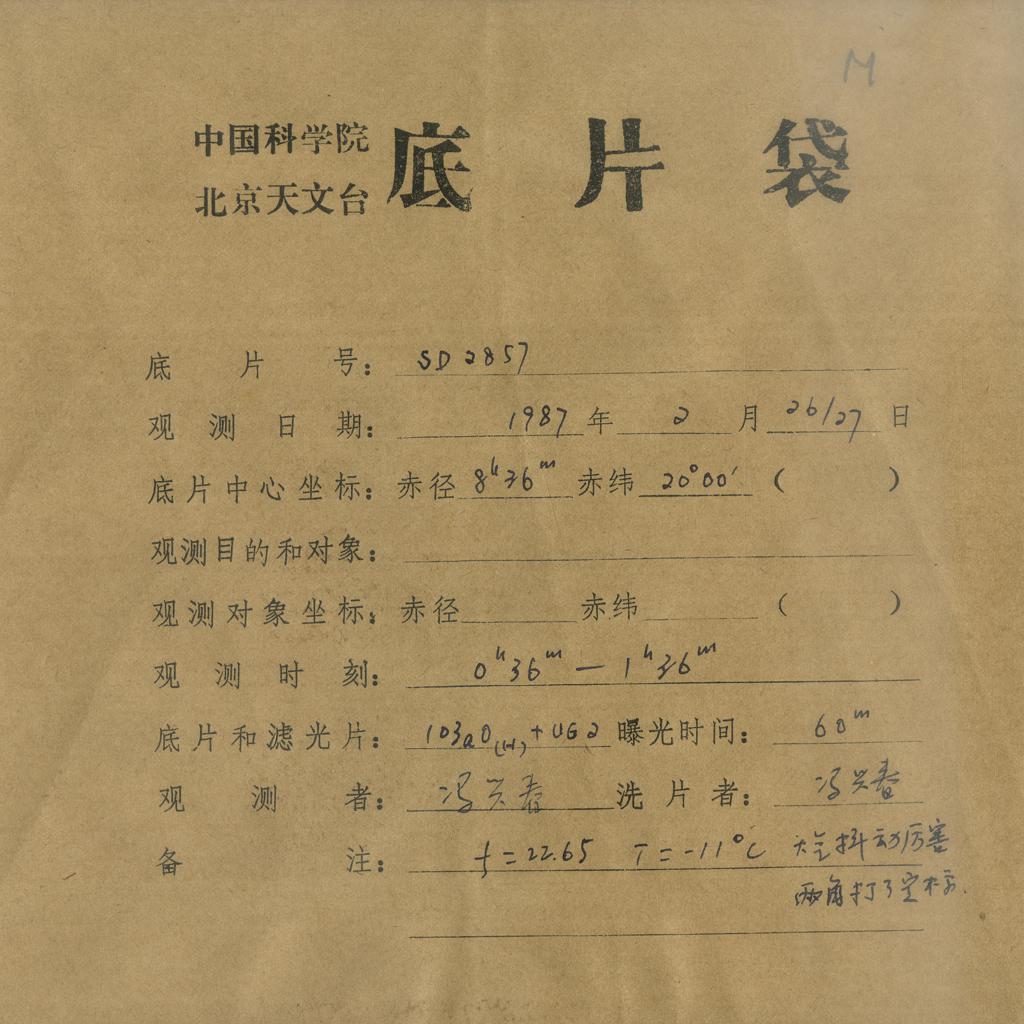 M
中国科学院
北京天文台
底片袋
底片号: SD2857
观测日期: 1987年2月26/27日
底片中心坐标: 赤径 8h36m 赤纬 20°00′ ( )
观测目的和对象:
观测对象坐标: 赤径 赤纬 ( )
观测时刻: 0h36m — 1h36m
底片和滤光片: 103aO(H)+UG2 曝光时间: 60m
观测者: 冯兴春 洗片者: 冯兴春
备注: f=22.65 T=-11°C 大气抖动厉害
两角打了定标.